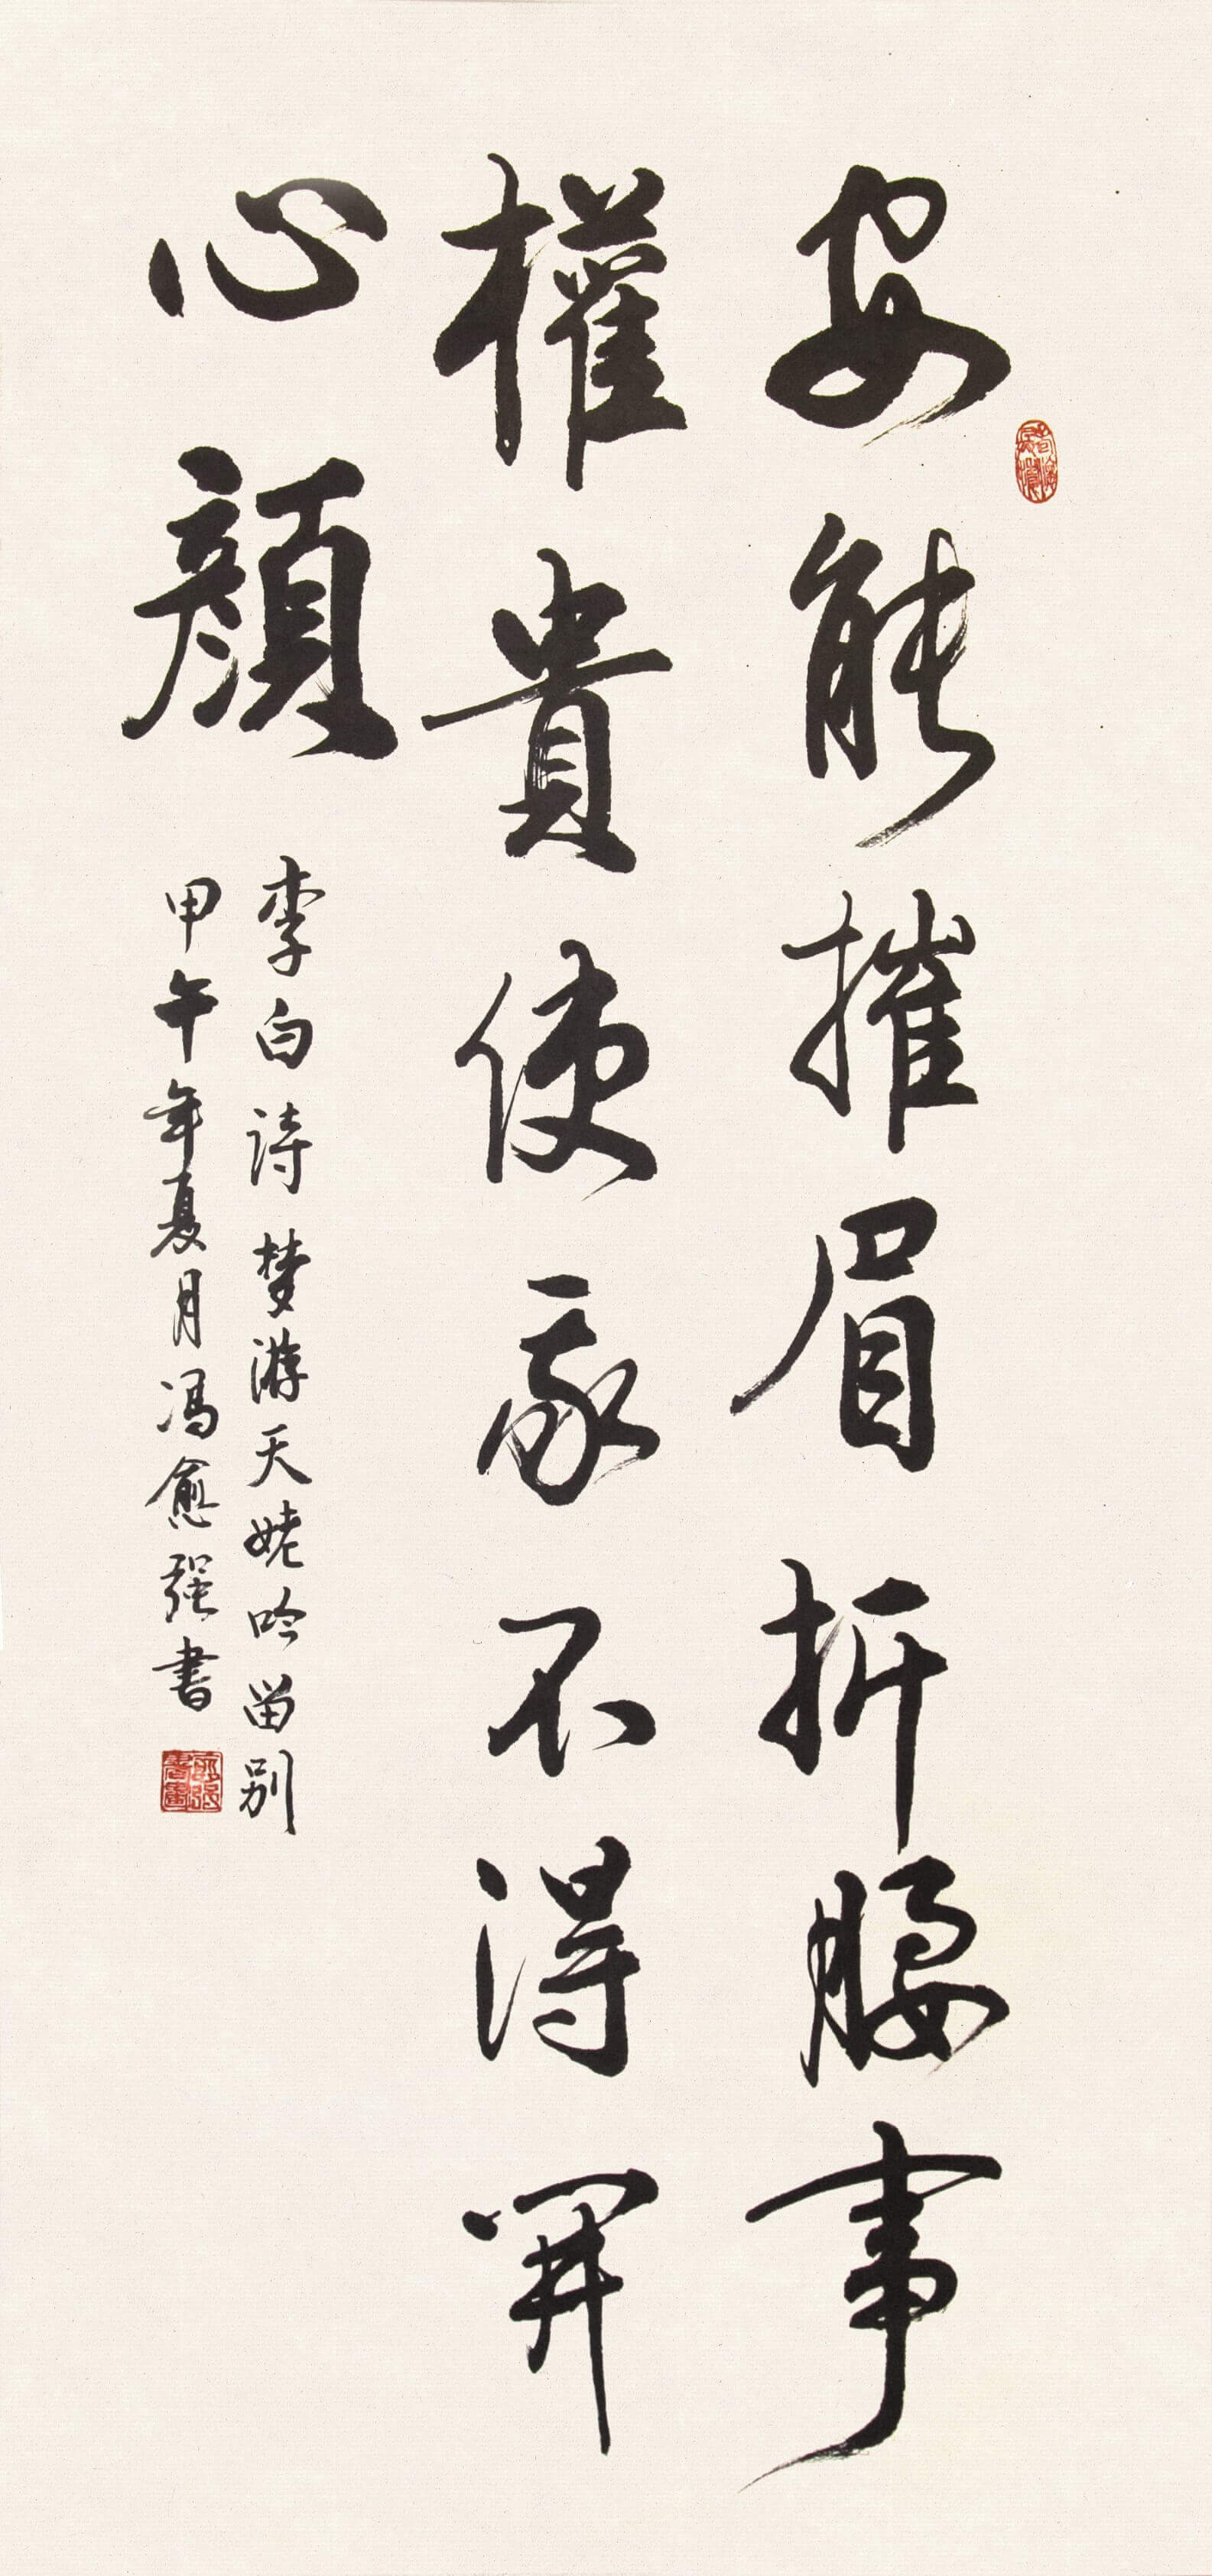 安能摧眉折腰事
權貴使我不得開
心顏
李白诗梦游天姥吟留别
甲午年夏月冯愈强書